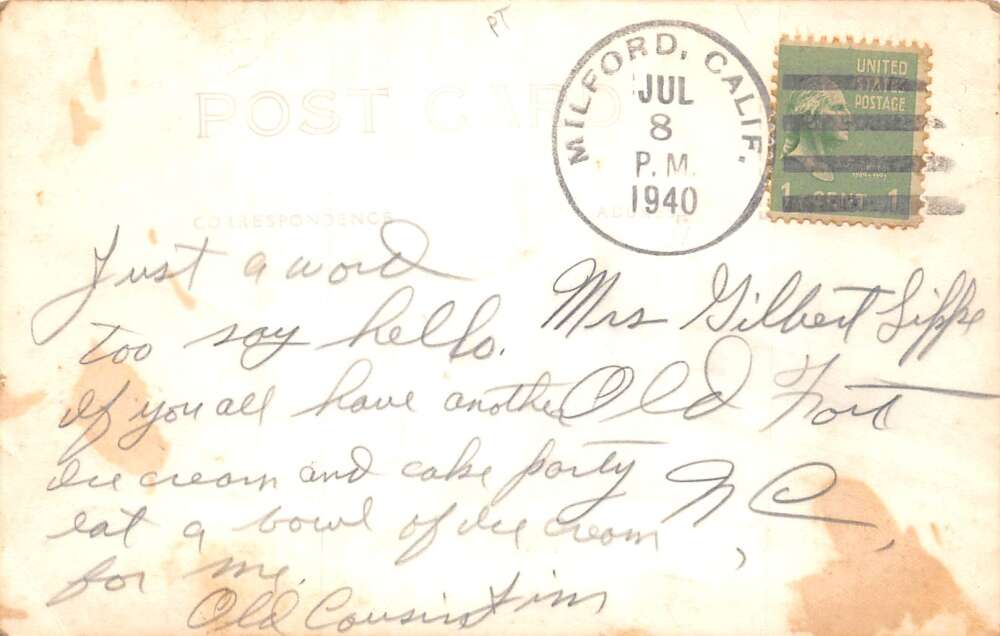 PT
POST CARD
MILFORD, CALIF.
JUL
8
P.M.
1940
UNITED
STATES
POSTAGE
1 CENT 1
CORRESPONDENCE
ADDRESS
Just a word
too say hello.
If you all have another
Ice cream and cake party
eat a bowl of ice cream
for me.
Old Cousin Jim
Mrs Gilbert Lippe
Old Fort
N C,